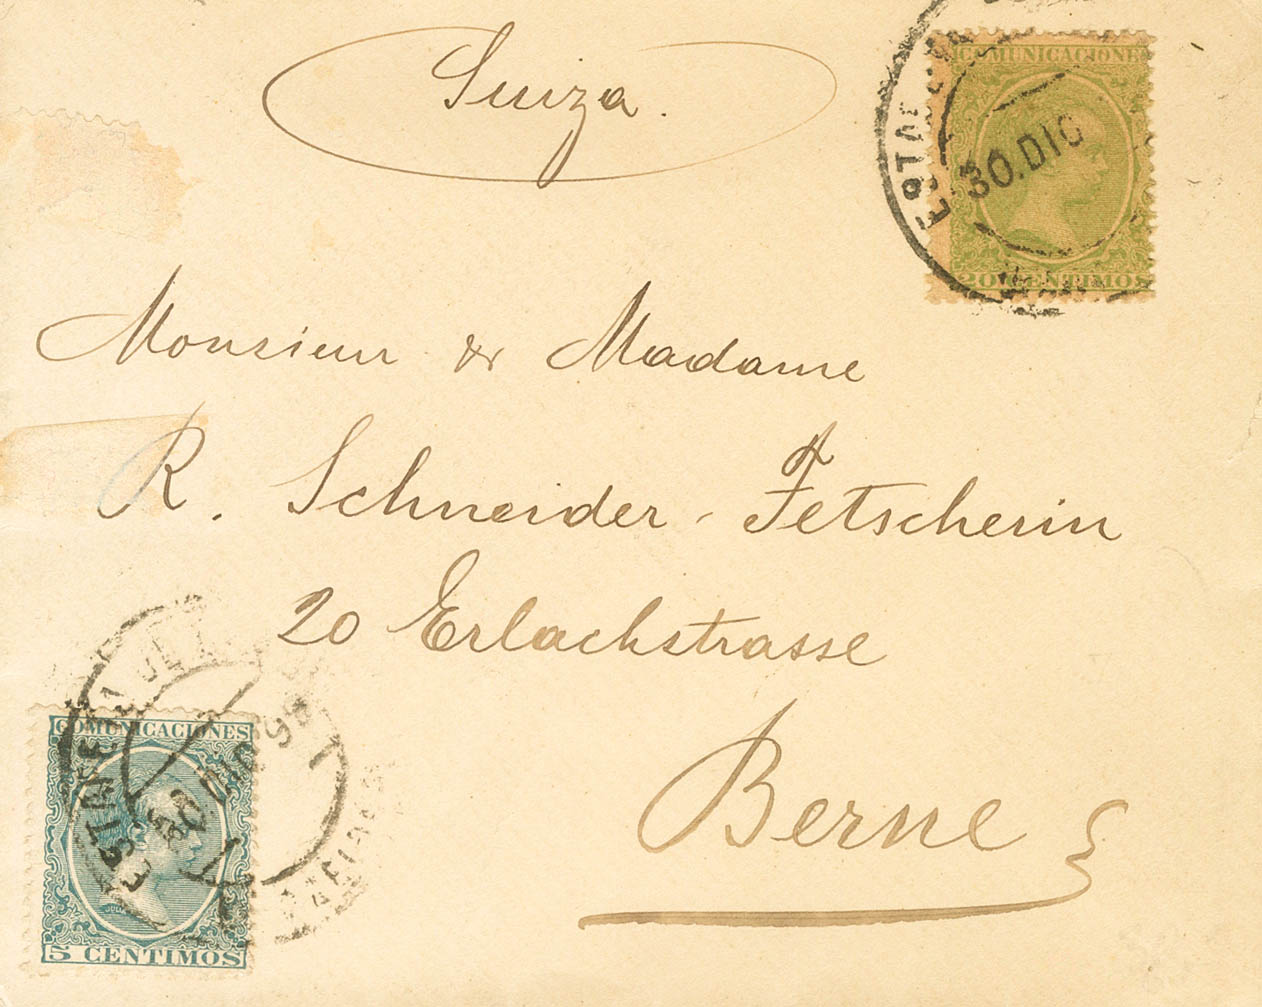 Suiza.
COMUNICACIONE
30.DIC
20 CENTIMOS
Monsieur & Madame
R. Schneider-Fetscherin
20 Erlachstrasse
Berne
COMUNICACIONES
DIC 99
5 CENTIMOS